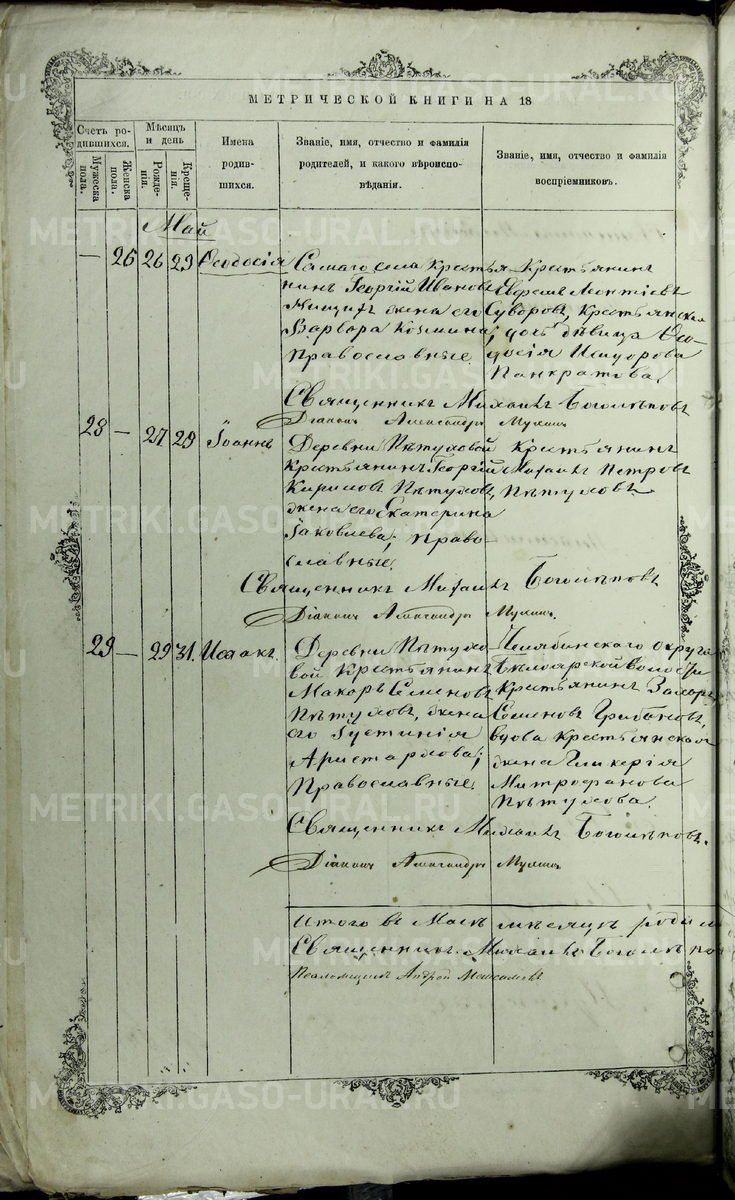 МЕТРИЧЕСКОЙ КНИГИ НА 18
Счетъ ро-
дившихся.
Мужеска
пола.
Женска
пола.
Мѣсяцъ
и день
Рожде-
нія.
Креще-
нія.
Имена
родив-
шихся.
Званіе, имя, отчество и фамилія
родителей, и какого вѣроиспо-
вѣданія.
Званіе, имя, отчество и фамилія
воспріемниковъ.
Май
— 26 26 29 Ѳеодосія
Самаго села Крестья-
нинъ Георгій Ивановъ
жена его
Варвара Козмина;
православные
Крестьянинъ
Ефремъ Леонтіевъ
Суворовъ, крестьянская
дочь дѣвица Ѳео-
досія Исидорова
Панкратова.
Священникъ Михаилъ Боголѣповъ
Діаконъ Александръ
28 — 27 29 Іоаннъ
Деревни Пѣтуховой
крестьянинъ Георгій
Кириловъ Пѣтуховъ,
жена его Екатерина
Іаковлева; право-
славные.
Крестьянинъ
Михаилъ Петровъ
Пѣтуховъ
Священникъ Михаилъ Боголѣповъ
Діаконъ Александръ
29 — 29 31. Исаакъ.
Деревни Пѣтухо-
вой крестьянинъ
Макаръ Семеновъ
Пѣтуховъ, жена
его Іустинія
Аристархова;
Православные.
Челябинскаго округа
Бѣлоярской волости
крестьянинъ Захаръ
Семеновъ Грибановъ,
вдова крестьянская
жена Гликерія
Митрофанова
Пѣтухова.
Священникъ Михаилъ Боголѣповъ.
Діаконъ Александръ
Итого въ Маѣ мѣсяцѣ роди
Священникъ Михаилъ Боголѣпов
Псаломщикъ Андрей
METRIKI.GASO-URAL.RU